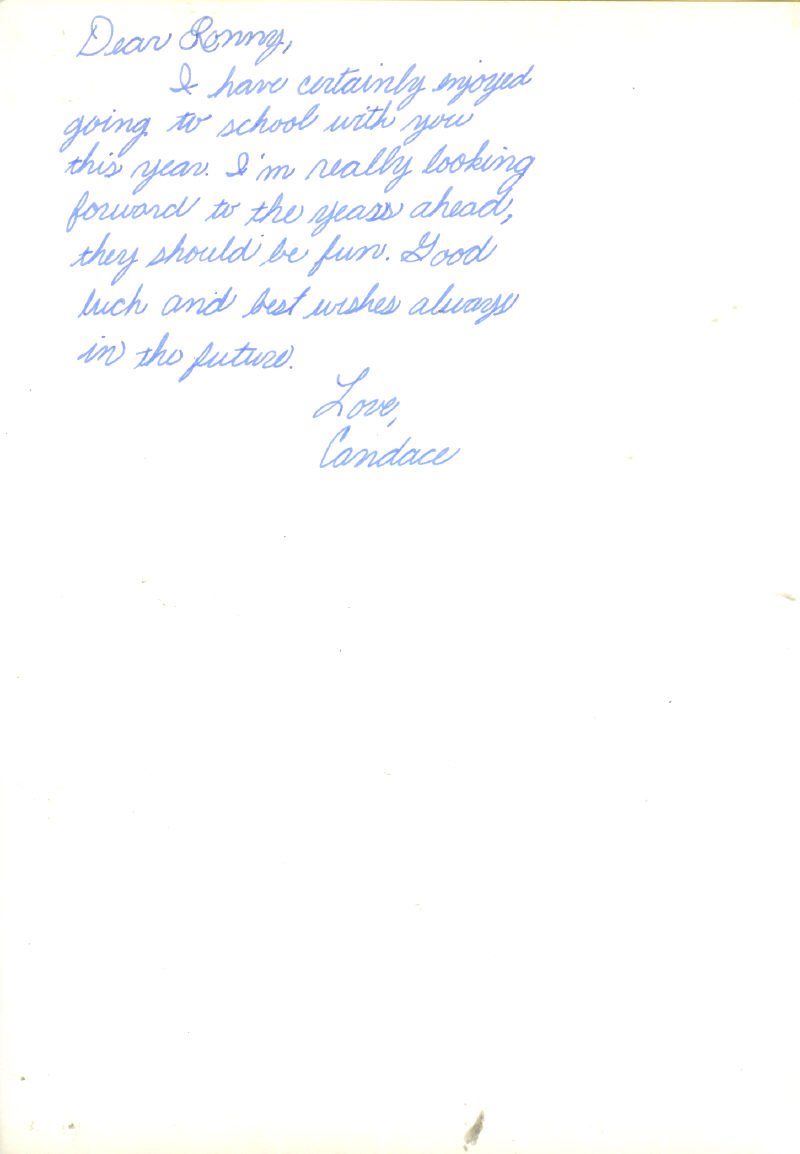 Dear Ronny,
I have certainly enjoyed
going to school with you
this year. I'm really looking
forward to the years ahead,
they should be fun. Good
luck and best wishes always
in the future.
Love,
Candace